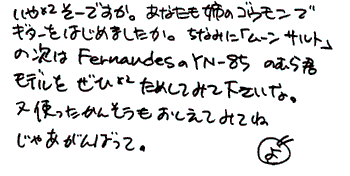 いや×2 そーですか。あなたも姉のゴウモンで
ギターをはじめましたか。ちなみに「ムーンサルト」
の次は FernandesのYN-85 のむら君
モデルを ぜひ×2 ためしてみて下さいな。
又使ったかんそうもおしえてみてね
じゃあがんばって。
よ